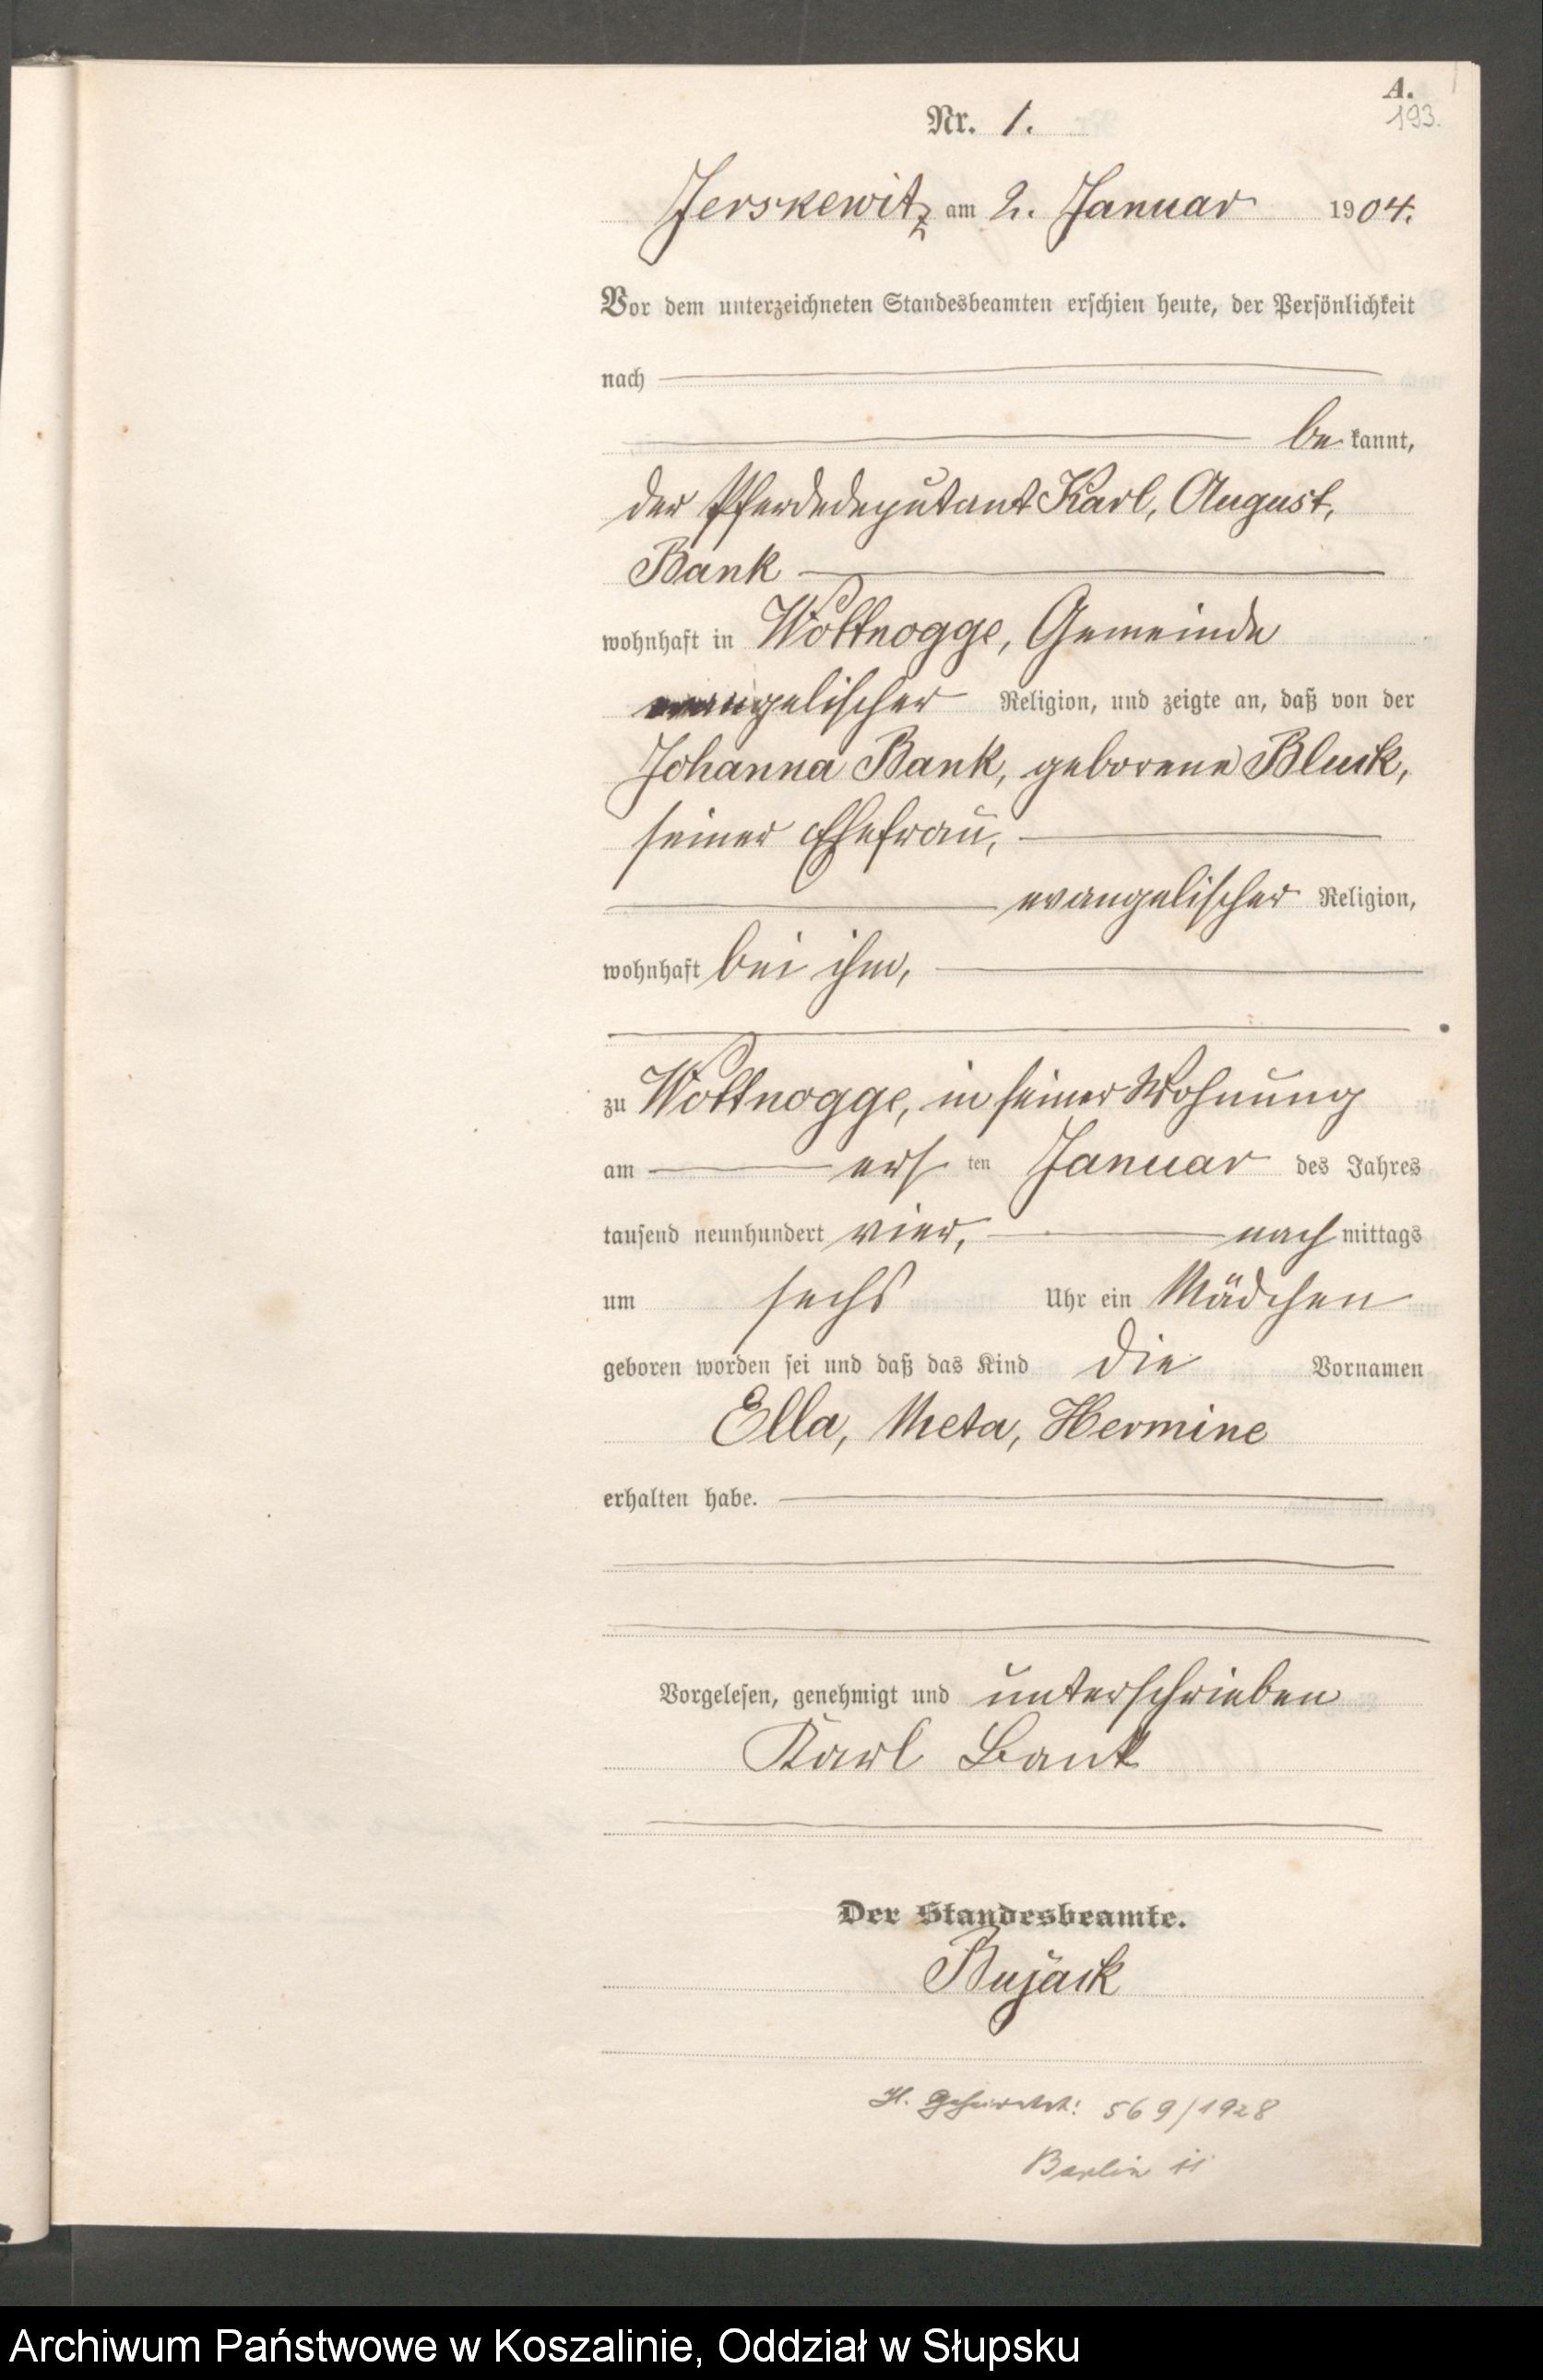 A.
193.
Nr. 1.
Jerskewitz am 2. Januar 1904.
Vor dem unterzeichneten Standesbeamten erschien heute, der Persönlichkeit
nach
be kannt,
der Pferdedeputant Karl, August,
Bank
wohnhaft in Wottnogge, Gemeinde
evangelischer Religion, und zeigte an, daß von der
Johanna Bank, geborene Bluck,
seiner Ehefrau,
evangelischer Religion,
wohnhaft bei ihm,
zu Wottnogge, in seiner Wohnung
am ers ten Januar des Jahres
tausend neunhundert vier, nach mittags
um sechs Uhr ein Mädchen
geboren worden sei und daß das Kind die Vornamen
Ella, Meta, Hermine
erhalten habe.
Vorgelesen, genehmigt und unterschrieben
Karl Bank
Der Standesbeamte.
Bujack
Geheiratet: 569/1928
Berlin
Archiwum Państwowe w Koszalinie, Oddział w Słupsku